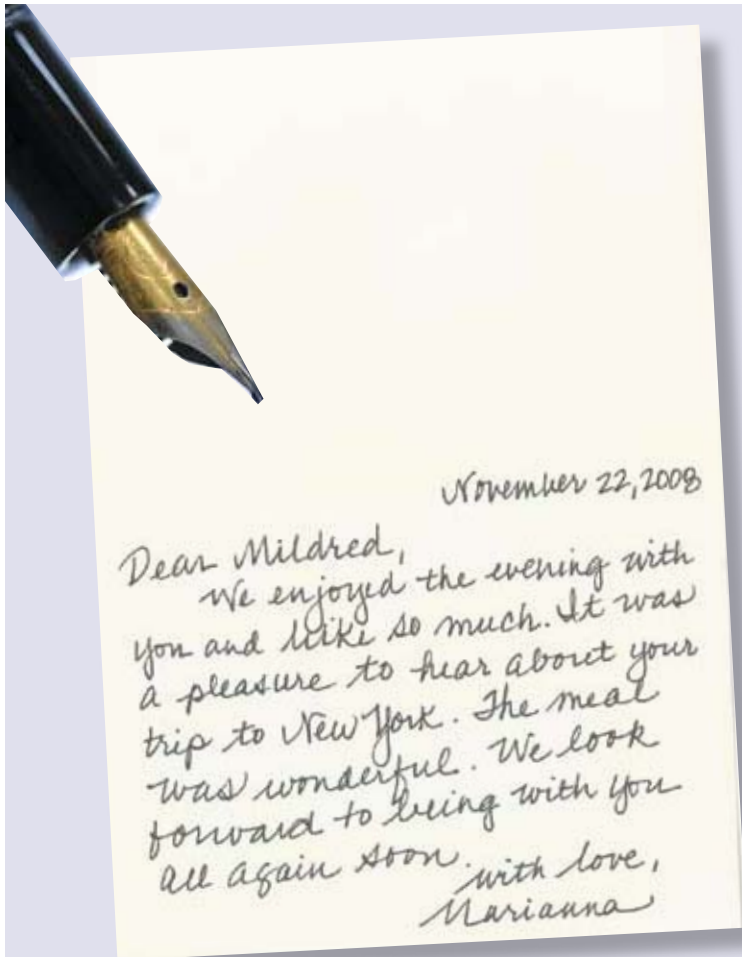 November 22, 2008
Dear Mildred,
We enjoyed the evening with
you and Mike so much. It was
a pleasure to hear about your
trip to New York. The meal
was wonderful. We look
forward to being with you
all again soon.
with love,
Marianna